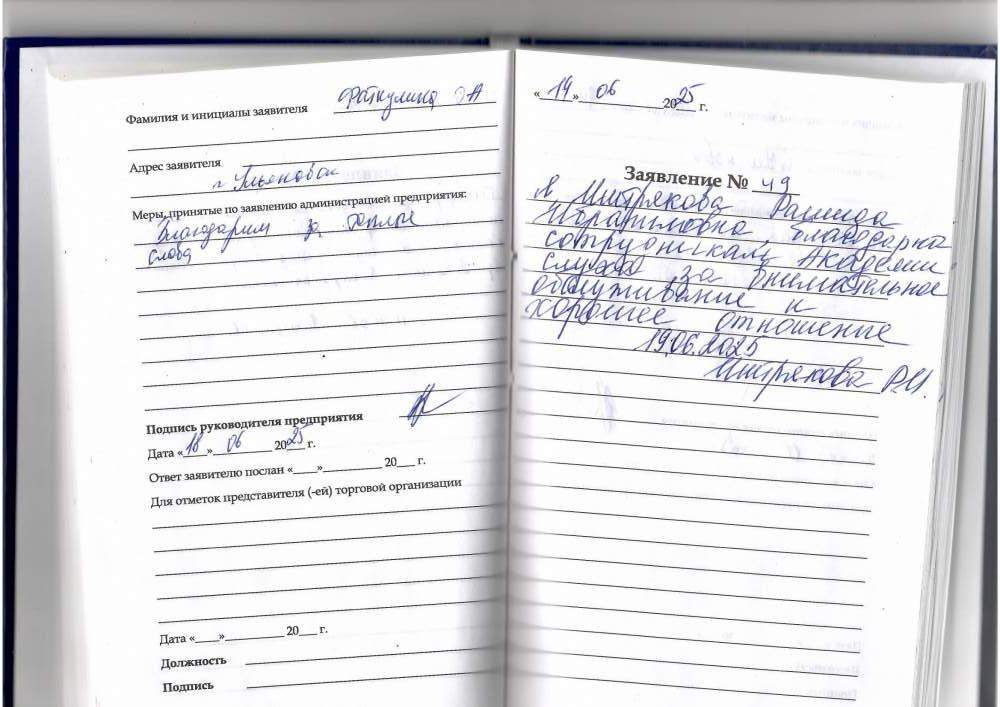 Фамилия и инициалы заявителя Фаткулина ЭА
Адрес заявителя
г Ульяновск
Меры, принятые по заявлению администрацией предприятия:
Благодарим за теплые
слова
Подпись руководителя предприятия
Дата «18» 06 2025 г.
Ответ заявителю послан «___»__________ 20___ г.
Для отметок представителя (-ей) торговой организации
Дата «___»__________ 20___ г.
Должность
Подпись
«19» 06 2025 г.
Заявление № 49
Я Митрякова Рашида
Ибрагимовна, благодарна
сотрудникам Академии
слуха за внимательное
обслуживание и
хорошее отношение
19.06.2025
Митрякова Р.И.